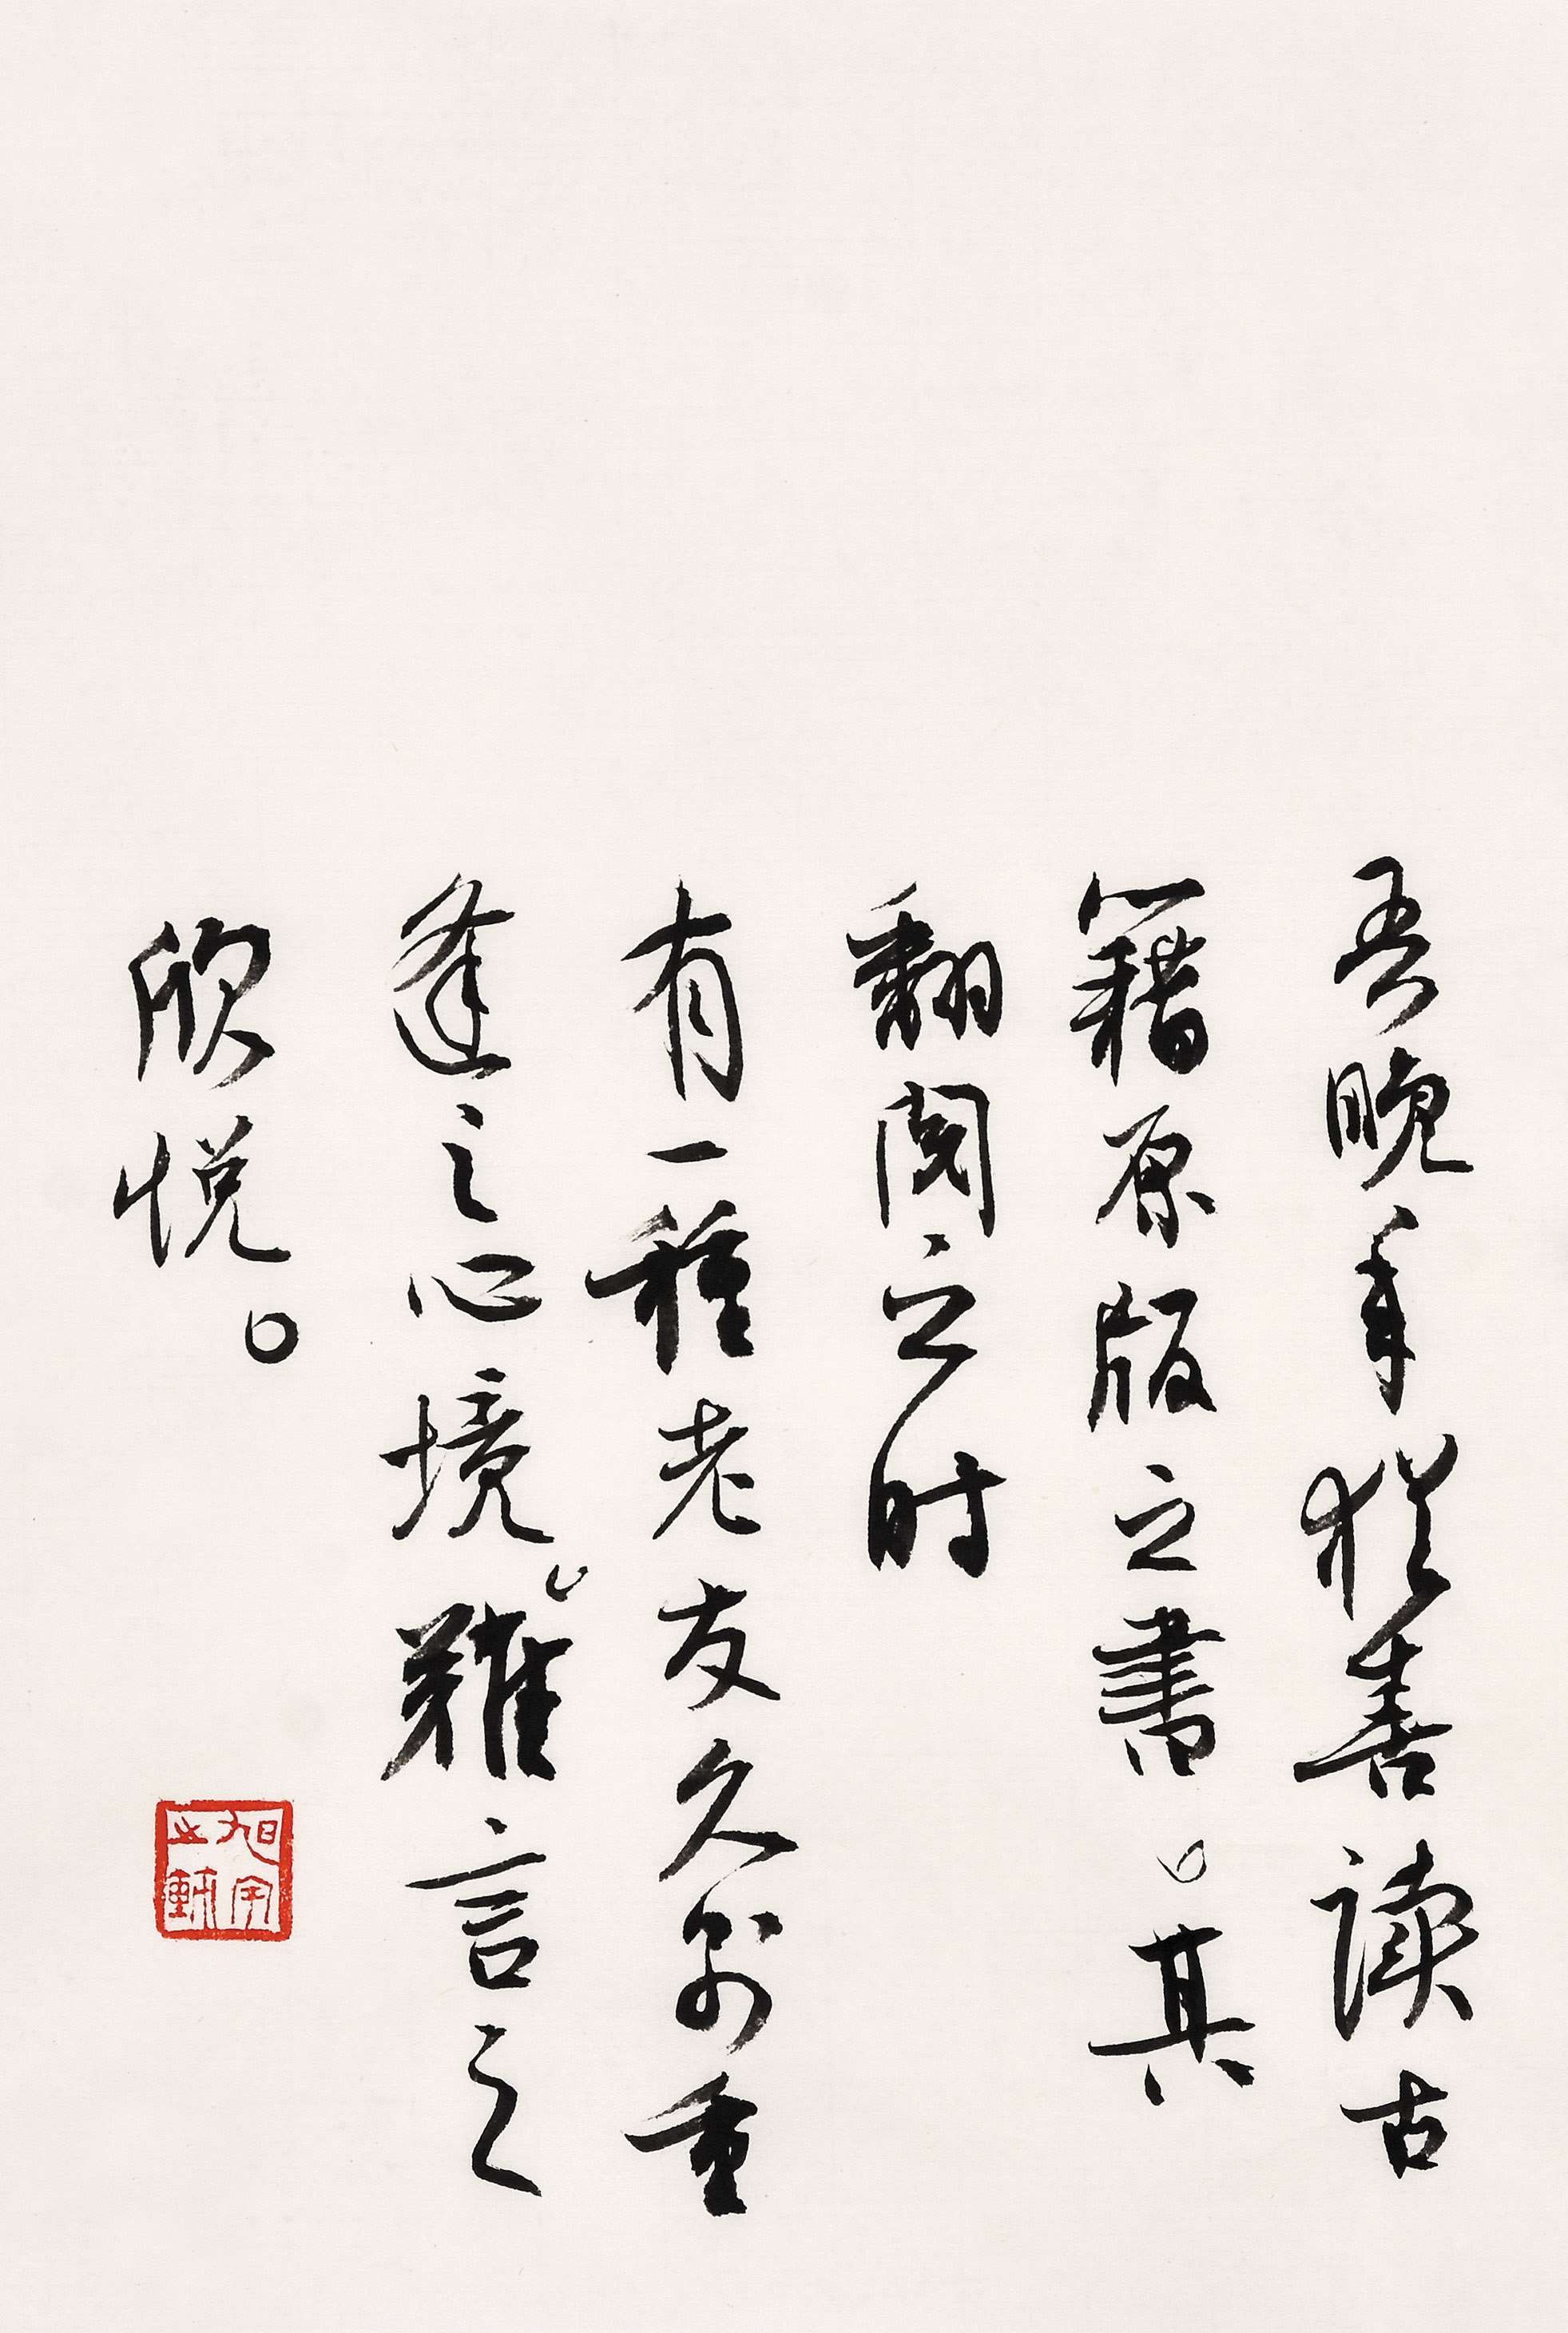 吾晚年犹喜读古
籍原版之書。其
翻閱之时
有一種老友久别重
逢之心境。難言之
欣悦。
旭宇
之軒